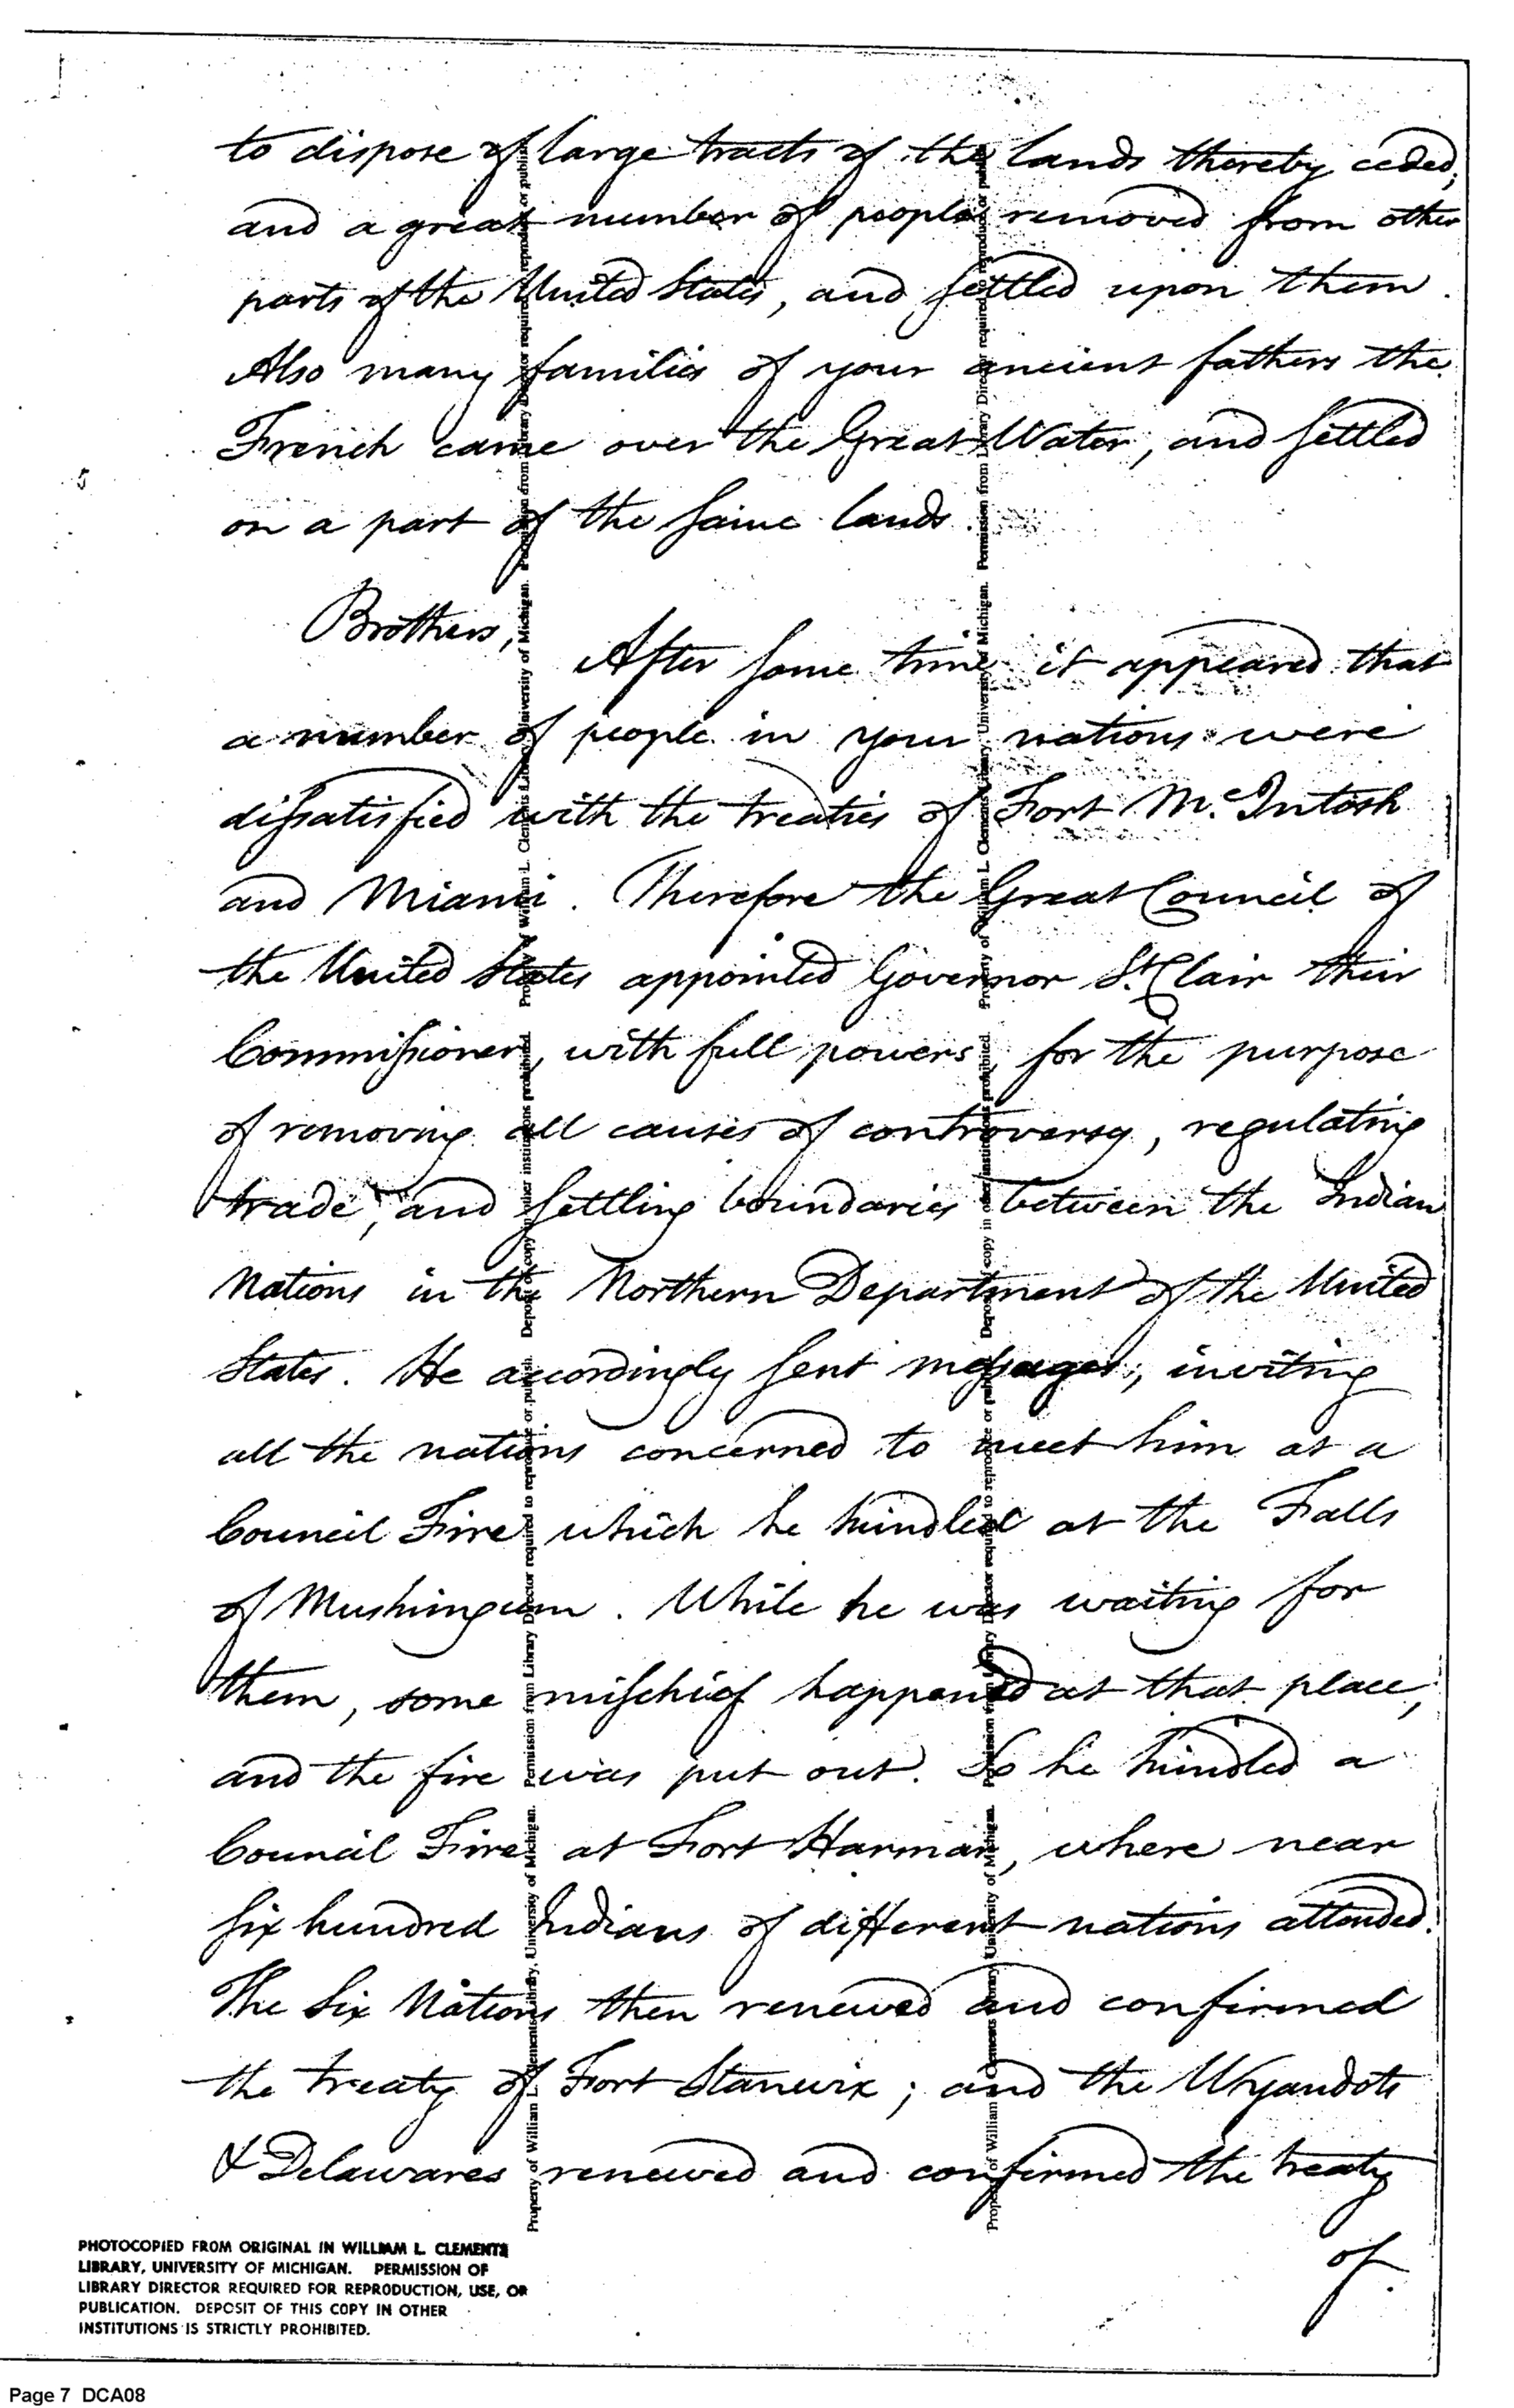 to dispose of large tracts of the lands thereby ceded;
and a great number of people removed from other
parts of the United States, and settled upon them.
Also many families of your ancient fathers the
French came over the Great Water, and settled
on a part of the same lands.
Brothers,
After some time it appeared that
a number of people in your nations were
dissatisfied with the treaties of Fort McIntosh
and Miami. Therefore the Great Council of
the United States appointed Governor St. Clair their
Commissioner, with full powers, for the purpose
of removing all causes of controversy, regulating
trade, and settling boundaries between the Indian
Nations in the Northern Department of the United
States. He accordingly sent messages, inviting
all the nations concerned to meet him at a
Council Fire which he kindled at the Falls
of Muskingum. While he was waiting for
them, some mischief happened at that place,
and the fire was put out. So he kindled a
Council Fire at Fort Harmar, where near
six hundred Indians of different nations attended.
The Six Nations then renewed and confirmed
the treaty of Fort Stanwix; and the Wyandots
& Delawares renewed and confirmed the treaty
of
Property of William L. Clements Library, University of Michigan. Permission from Library Director required to reproduce or publish. Deposit of copy in other institutions prohibited. Property of William L. Clements Library, University of Michigan. Permission from Library Director required to reproduce or publish
Property of William L. Clements Library, University of Michigan. Permission from Library Director required to reproduce or publish. Deposit of copy in other institutions prohibited. Property of William L. Clements Library, University of Michigan. Permission from Library Director required to reproduce or publish
PHOTOCOPIED FROM ORIGINAL IN WILLIAM L. CLEMENTS
LIBRARY, UNIVERSITY OF MICHIGAN. PERMISSION OF
LIBRARY DIRECTOR REQUIRED FOR REPRODUCTION, USE, OR
PUBLICATION. DEPOSIT OF THIS COPY IN OTHER
INSTITUTIONS IS STRICTLY PROHIBITED.
Page 7 DCA08